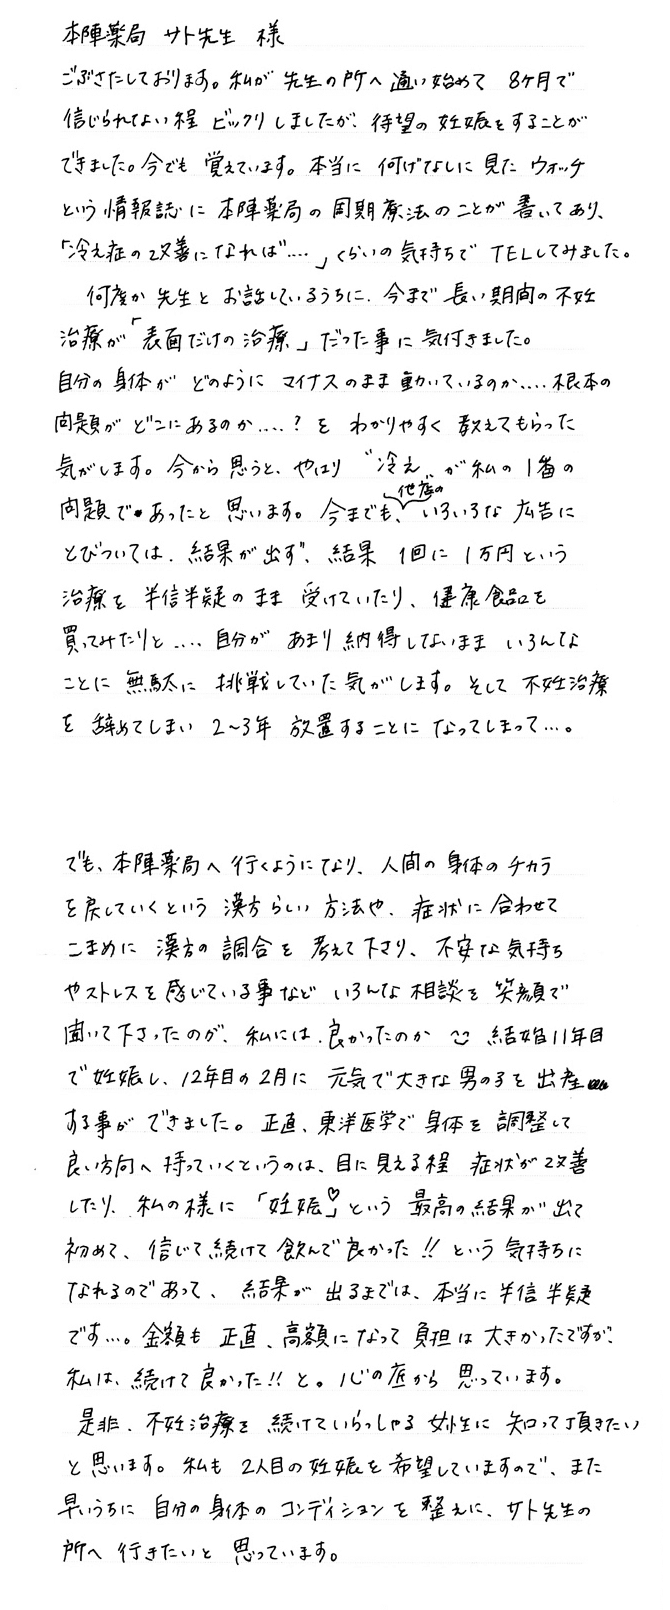 本陣薬局 サト先生 様
ごぶさたしております。私が 先生の所へ 通い始めて 8ヶ月で
信じられない程 ビックリしましたが、待望の妊娠をすることが
できました。今でも 覚えています。本当に 何げなしに見た ウォッチ
という情報誌に 本陣薬局の 周期療法のことが 書いてあり、
「冷え症の改善になれば‥‥」くらいの気持ちで TELしてみました。
何度か 先生と お話しているうちに、今まで 長い期間の不妊
治療が「表面だけの治療」だった事に 気付きました。
自分の身体が どのように マイナスのまま 動いているのか‥‥根本の
問題が どこにあるのか‥‥?を わかりやすく 教えてもらった
気がします。今から思うと、やはり “冷え„が私の 1番の
問題であったと 思います。今までも、他店の いろいろな 広告に
とびついては、結果が出ず、結果 1回に 1万円という
治療を 半信半疑のまま 受けていたり、健康食品を
買ってみたりと‥‥自分が あまり納得しないまま いろんな
ことに 無駄に 挑戦していた気がします。そして 不妊治療
を 辞めてしまい 2〜3年 放置することに なってしまって…。
でも、本陣薬局へ行くようになり、人間の身体のチカラ
を戻していくという 漢方らしい 方法や、症状に合わせて
こまめに 漢方の調合を 考えて下さり、不安な気持ち
やストレスを感じている事など いろんな相談を 笑顔で
聞いて下さったのが、私には、良かったのか 結婚11年目
で妊娠し、12年目の2月に 元気で大きな男の子を 出産
する事が できました。正直、東洋医学で身体を 調整して
良い方向へ 持っていくというのは、目に見える程 症状が改善
したり、私の様に 「妊娠♡」という 最高の結果が 出て
初めて、信じて続けて 飲んで良かった!!という 気持ちに
なれるのであって、結果が 出るまでは、本当に 半信半疑
です…。金額も 正直、高額になって 負担は 大きかったですが、
私は、続けて良かった!!と。心の底から 思っています。
是非、不妊治療を 続けていらっしゃる 女性に 知って頂きたい
と思います。私も 2人目の妊娠を希望していますので、また
早いうちに 自分の身体の コンディションを 整えに、サト先生の
所へ 行きたいと 思っています。